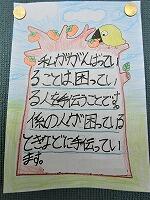 私ががんばってい
ることは、困ってい
る人を手伝うことです。
係の人が困っている
ときなどに手伝ってい
ます。